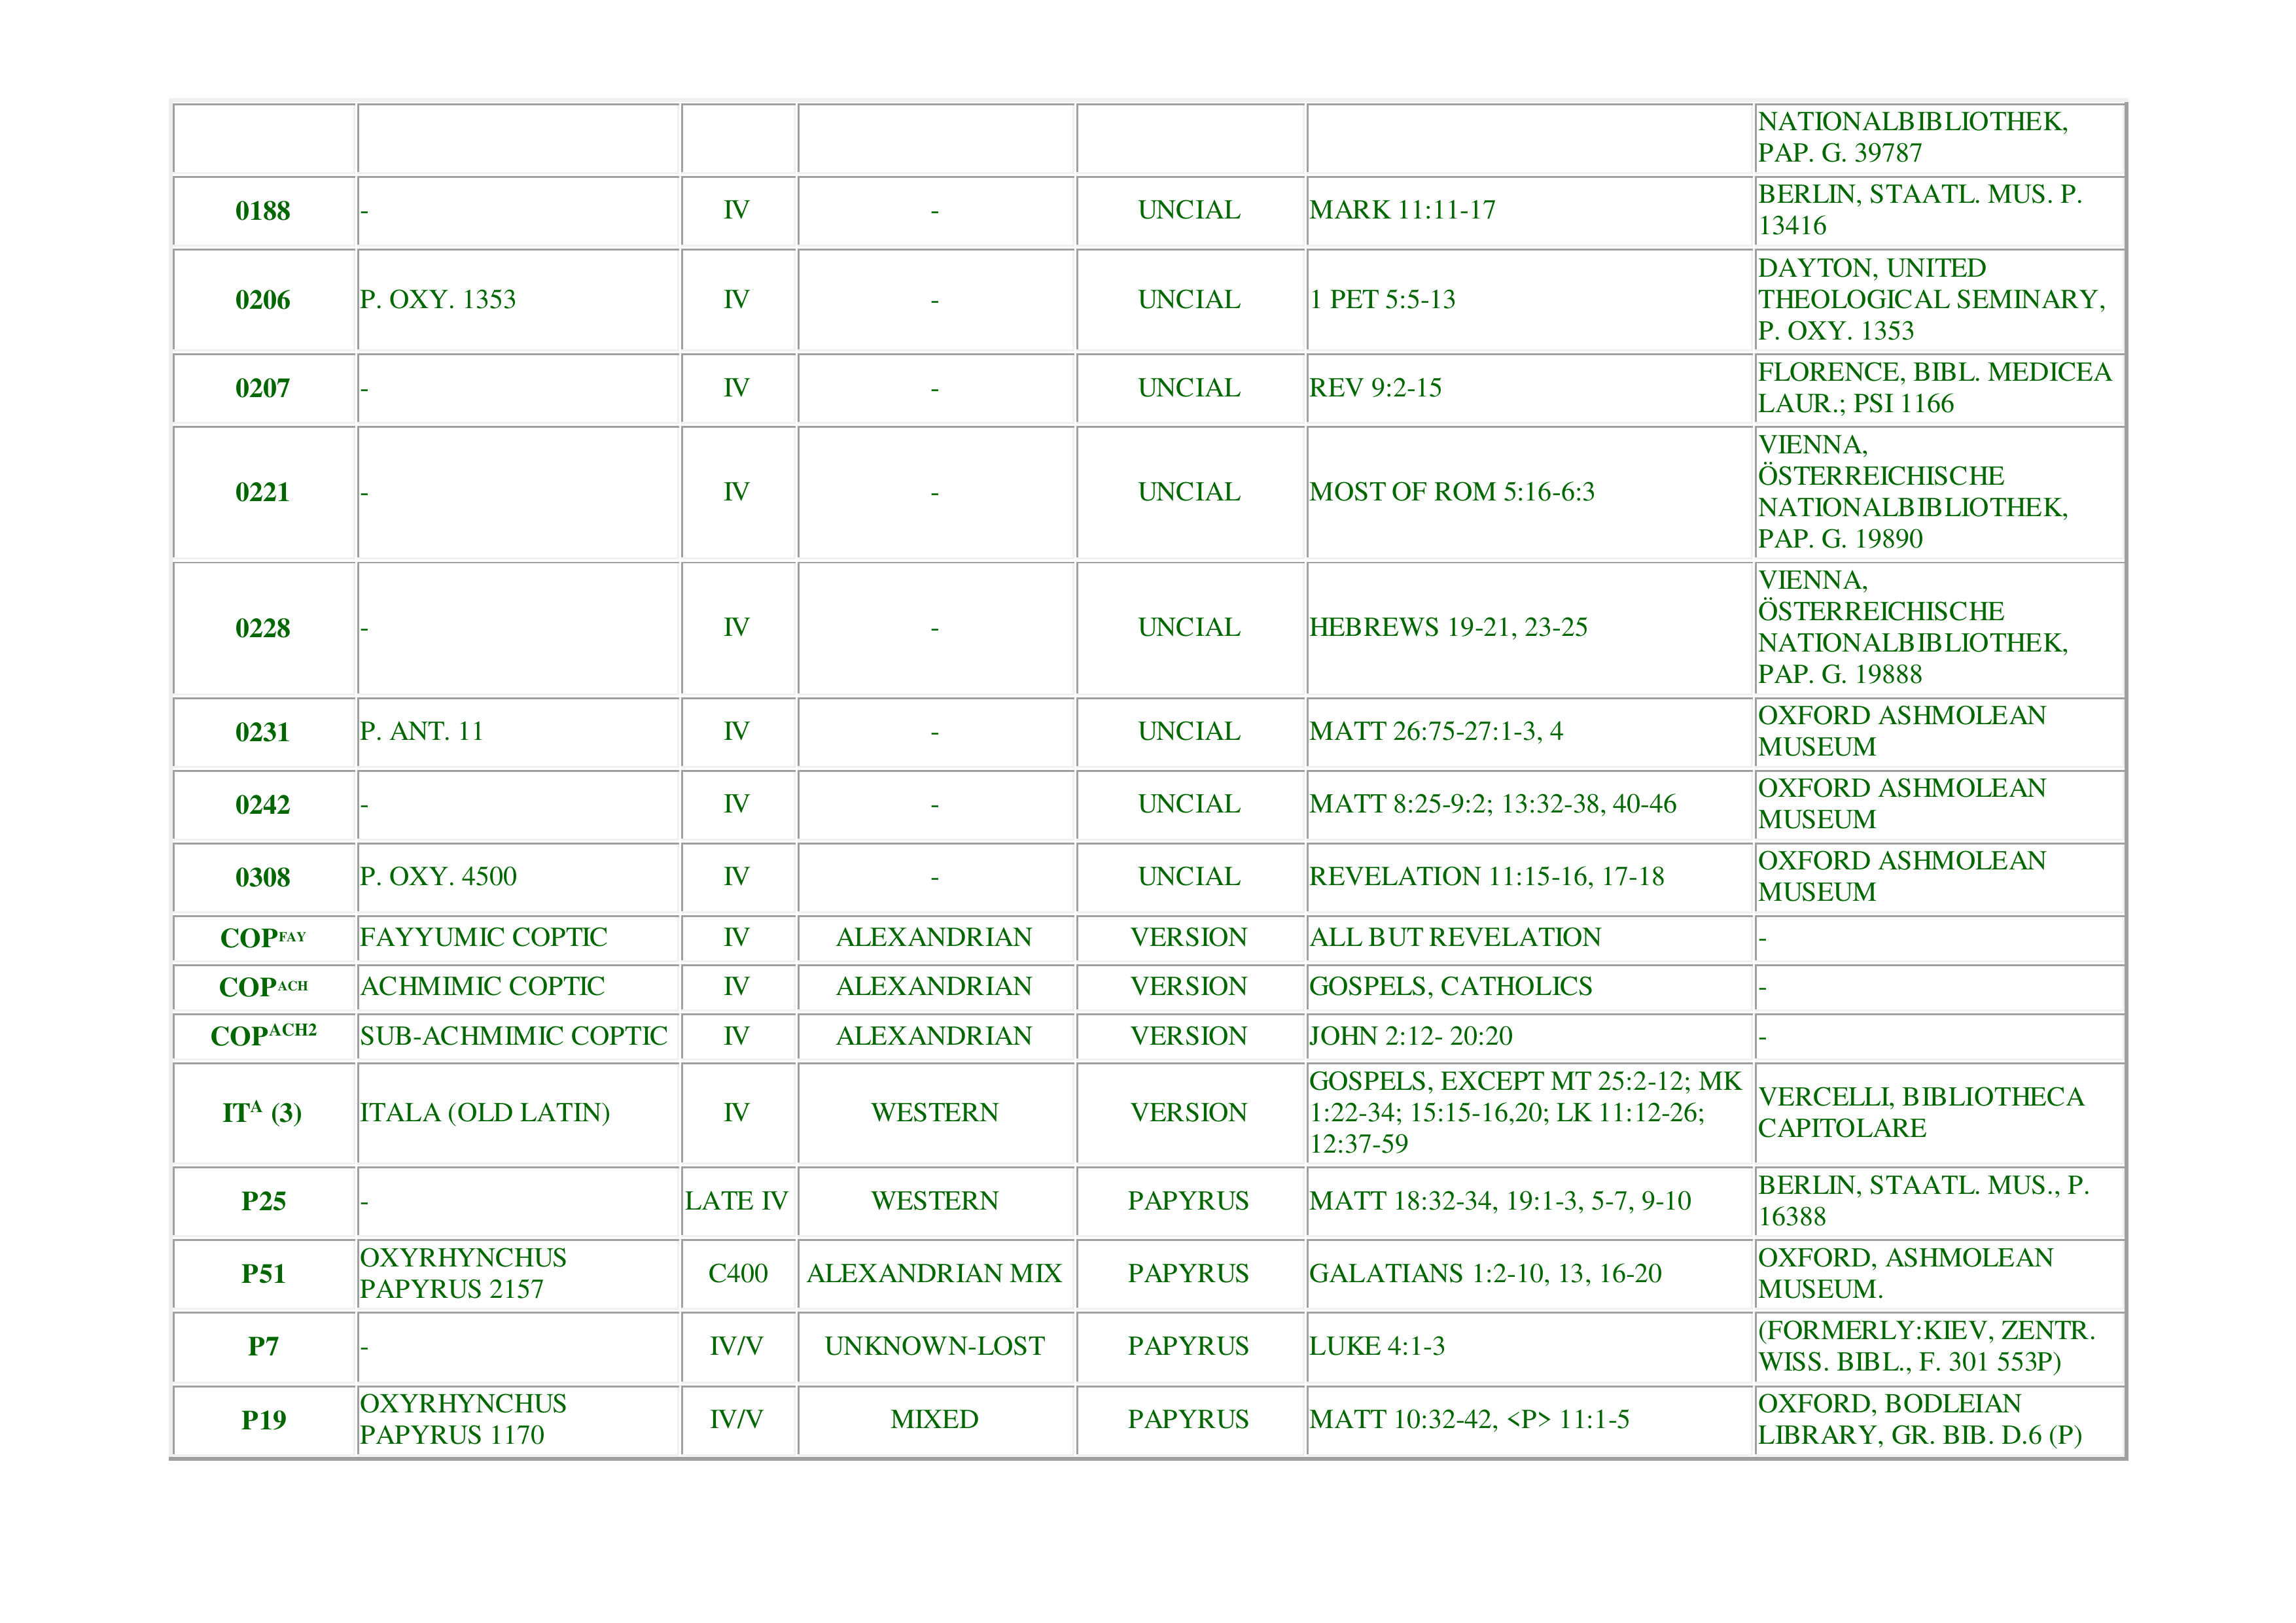 NATIONALBIBLIOTHEK,
PAP. G. 39787
0188 - IV - UNCIAL MARK 11:11-17 BERLIN, STAATL. MUS. P.
13416
0206 P. OXY. 1353 IV - UNCIAL 1 PET 5:5-13 DAYTON, UNITED
THEOLOGICAL SEMINARY,
P. OXY. 1353
0207 - IV - UNCIAL REV 9:2-15 FLORENCE, BIBL. MEDICEA
LAUR.; PSI 1166
0221 - IV - UNCIAL MOST OF ROM 5:16-6:3 VIENNA,
ÖSTERREICHISCHE
NATIONALBIBLIOTHEK,
PAP. G. 19890
0228 - IV - UNCIAL HEBREWS 19-21, 23-25 VIENNA,
ÖSTERREICHISCHE
NATIONALBIBLIOTHEK,
PAP. G. 19888
0231 P. ANT. 11 IV - UNCIAL MATT 26:75-27:1-3, 4 OXFORD ASHMOLEAN
MUSEUM
0242 - IV - UNCIAL MATT 8:25-9:2; 13:32-38, 40-46 OXFORD ASHMOLEAN
MUSEUM
0308 P. OXY. 4500 IV - UNCIAL REVELATION 11:15-16, 17-18 OXFORD ASHMOLEAN
MUSEUM
COPFAY FAYYUMIC COPTIC IV ALEXANDRIAN VERSION ALL BUT REVELATION -
COPACH ACHMIMIC COPTIC IV ALEXANDRIAN VERSION GOSPELS, CATHOLICS -
COPACH2 SUB-ACHMIMIC COPTIC IV ALEXANDRIAN VERSION JOHN 2:12- 20:20 -
ITA (3) ITALA (OLD LATIN) IV WESTERN VERSION GOSPELS, EXCEPT MT 25:2-12; MK
1:22-34; 15:15-16,20; LK 11:12-26;
12:37-59
VERCELLI, BIBLIOTHECA
CAPITOLARE
P25 - LATE IV WESTERN PAPYRUS MATT 18:32-34, 19:1-3, 5-7, 9-10 BERLIN, STAATL. MUS., P.
16388
P51 OXYRHYNCHUS
PAPYRUS 2157
C400 ALEXANDRIAN MIX PAPYRUS GALATIANS 1:2-10, 13, 16-20 OXFORD, ASHMOLEAN
MUSEUM.
P7 - IV/V UNKNOWN-LOST PAPYRUS LUKE 4:1-3 (FORMERLY:KIEV, ZENTR.
WISS. BIBL., F. 301 553P)
P19 OXYRHYNCHUS
PAPYRUS 1170
IV/V MIXED PAPYRUS MATT 10:32-42, <P> 11:1-5 OXFORD, BODLEIAN
LIBRARY, GR. BIB. D.6 (P)